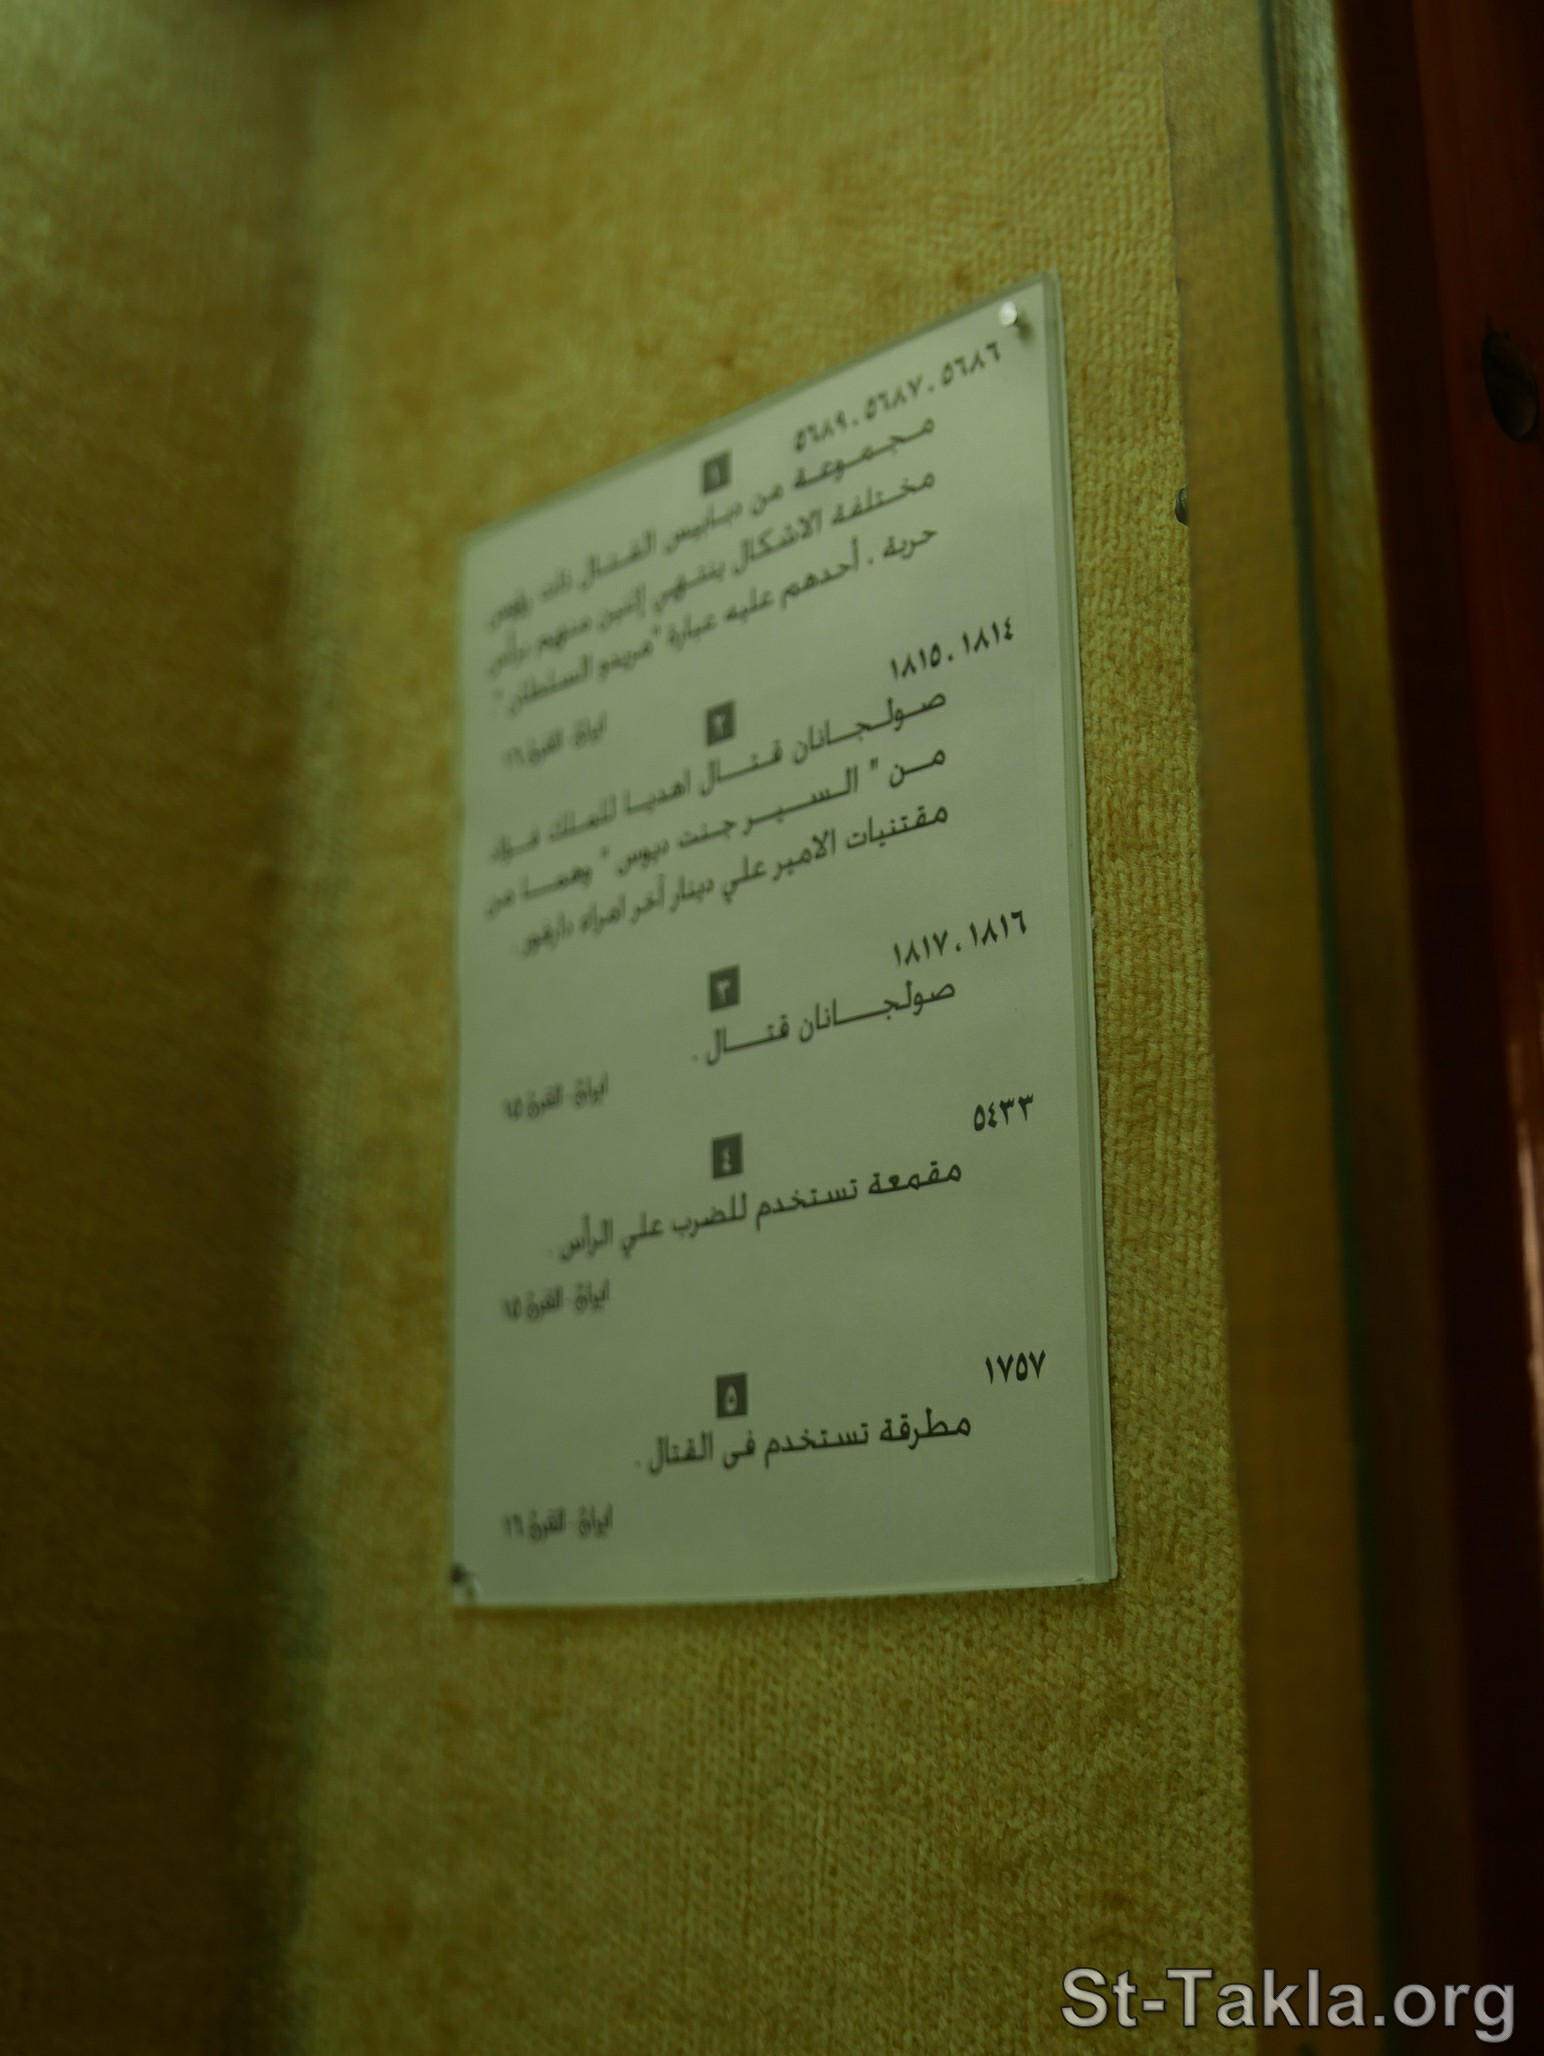 ٥٦٨٦ . ٥٦٨٧ . ٥٦٨٩
١
مجموعة من دبابيس القتال ذات رؤوس
مختلفة الاشكال ينتهي إثنين منهم برأس
حربة . أحدهم عليه عبارة "مريدو السلطان" .
ايران - القرن ١٦
١٨١٤ . ١٨١٥
٢
صولجانان قتال اهديا للملك فؤاد
من " السير جنت ديوس " وهما من
مقتنيات الامير علي دينار آخر امراء دارفور .
١٨١٦ . ١٨١٧
٣
صولجانان قتال .
ايران - القرن ١٥
٥٤٣٣
٤
مقمعة تستخدم للضرب علي الرأس .
ايران - القرن ١٥
١٧٥٧
٥
مطرقة تستخدم فى القتال .
ايران - القرن ١٦
St-Takla.org